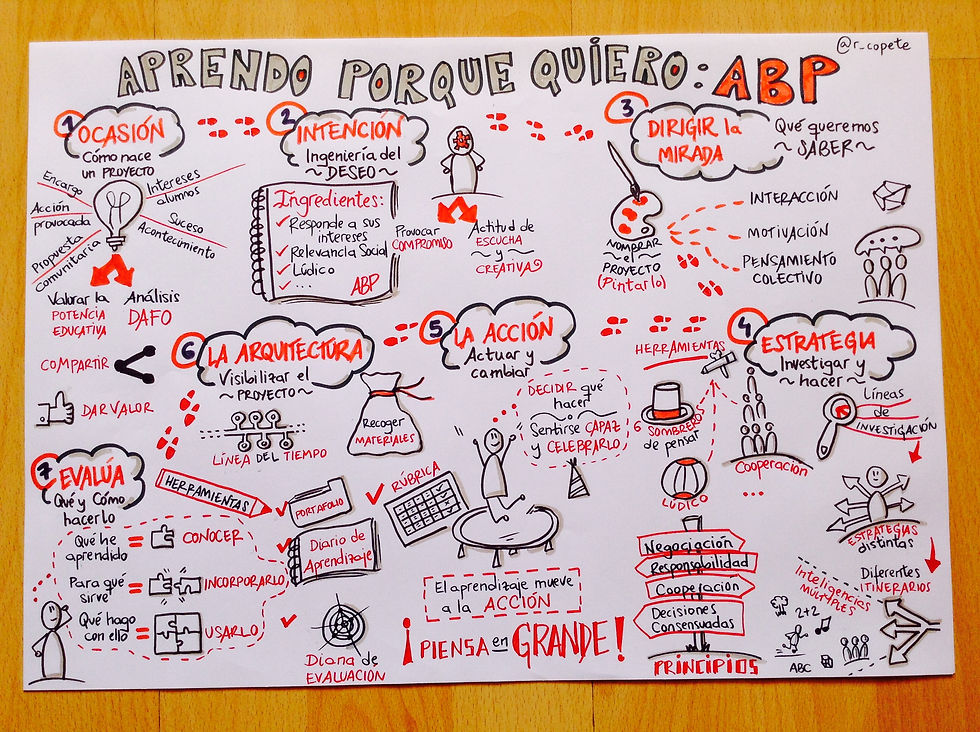 @r_copete
APRENDO PORQUE QUIERO: ABP
1
OCASIÓN
Cómo nace
un PROYECTO
Encargo
Acción
provocada
Propuesta
comunitaria
Intereses
alumnos
Suceso
Acontecimiento
Valorar la
POTENCIA
EDUCATIVA
Análisis
DAFO
2
INTENCIÓN
Ingeniería del
~ DESEO ~
Ingredientes:
✓ Responde a sus
intereses
✓ Relevancia Social
✓ Lúdico
✓ ...
ABP
Provocar
COMPROMISO
Actitud de
ESCUCHA
~ y ~
CREATIVA
3
DIRIGIR la
MIRADA
Qué queremos
~ SABER ~
NOMBRAR
el
PROYECTO
(Pintarlo)
INTERACCIÓN
MOTIVACIÓN
PENSAMIENTO
COLECTIVO
4
ESTRATEGIA
Investigar y
~ hacer ~
HERRAMIENTAS
6 SOMBREROS
de pensar
LÚDICO
Cooperación
...
Líneas
de
INVESTIGACIÓN
ESTRATEGIAS
distintas
Diferentes
ITINERARIOS
Inteligencias
MÚLTIPLES
2+2
ABC
Negociación
Responsabilidad
Cooperación
Decisiones
Consensuadas
PRINCIPIOS
5
LA ACCIÓN
Actuar y
cambiar
DECIDIR qué
hacer
Sentirse CAPAZ
y CELEBRARLO
El aprendizaje mueve
a la ACCIÓN
¡PIENSA en GRANDE!
6
LA ARQUITECTURA
Visibilizar el
~ PROYECTO ~
COMPARTIR
DAR VALOR
LÍNEA DEL TIEMPO
Recoger
MATERIALES
7
EVALÚA
Qué y Cómo
hacerlo
HERRAMIENTAS
PORTAFOLIO
✓ RÚBRICA
Diario de
Aprendizaje
Diana de
EVALUACIÓN
Qué he
aprendido
= CONOCER
Para qué
sirve
= INCORPORARLO
Qué hago
con ello
= USARLO